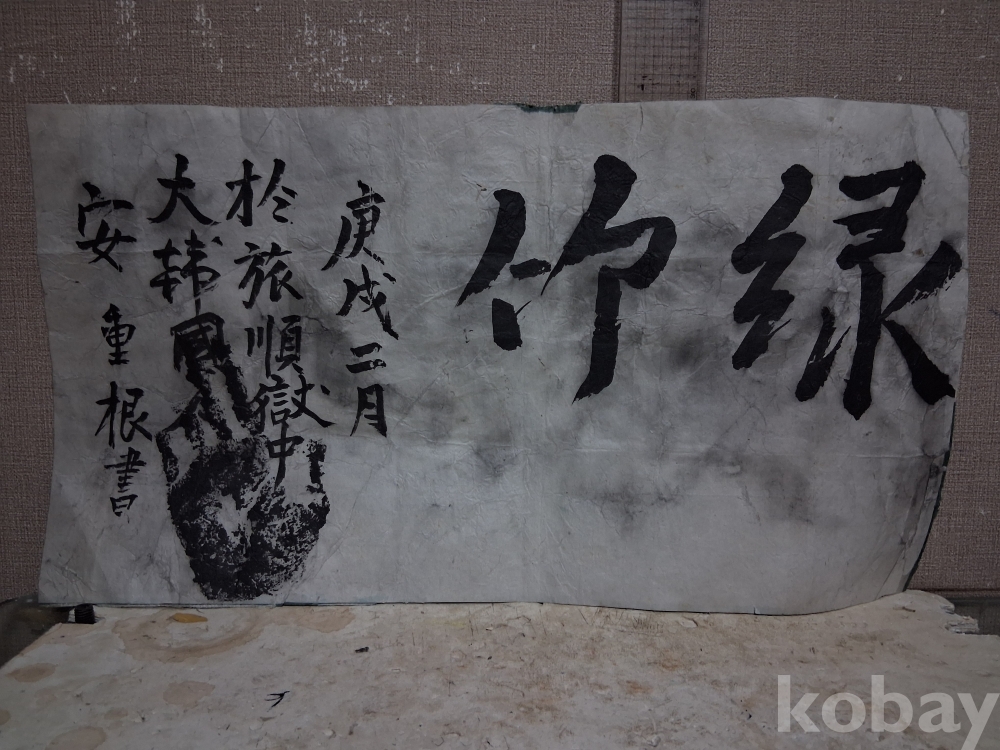 綠竹
庚戌二月
於旅順獄中
大韓國人
安重根書
kobay